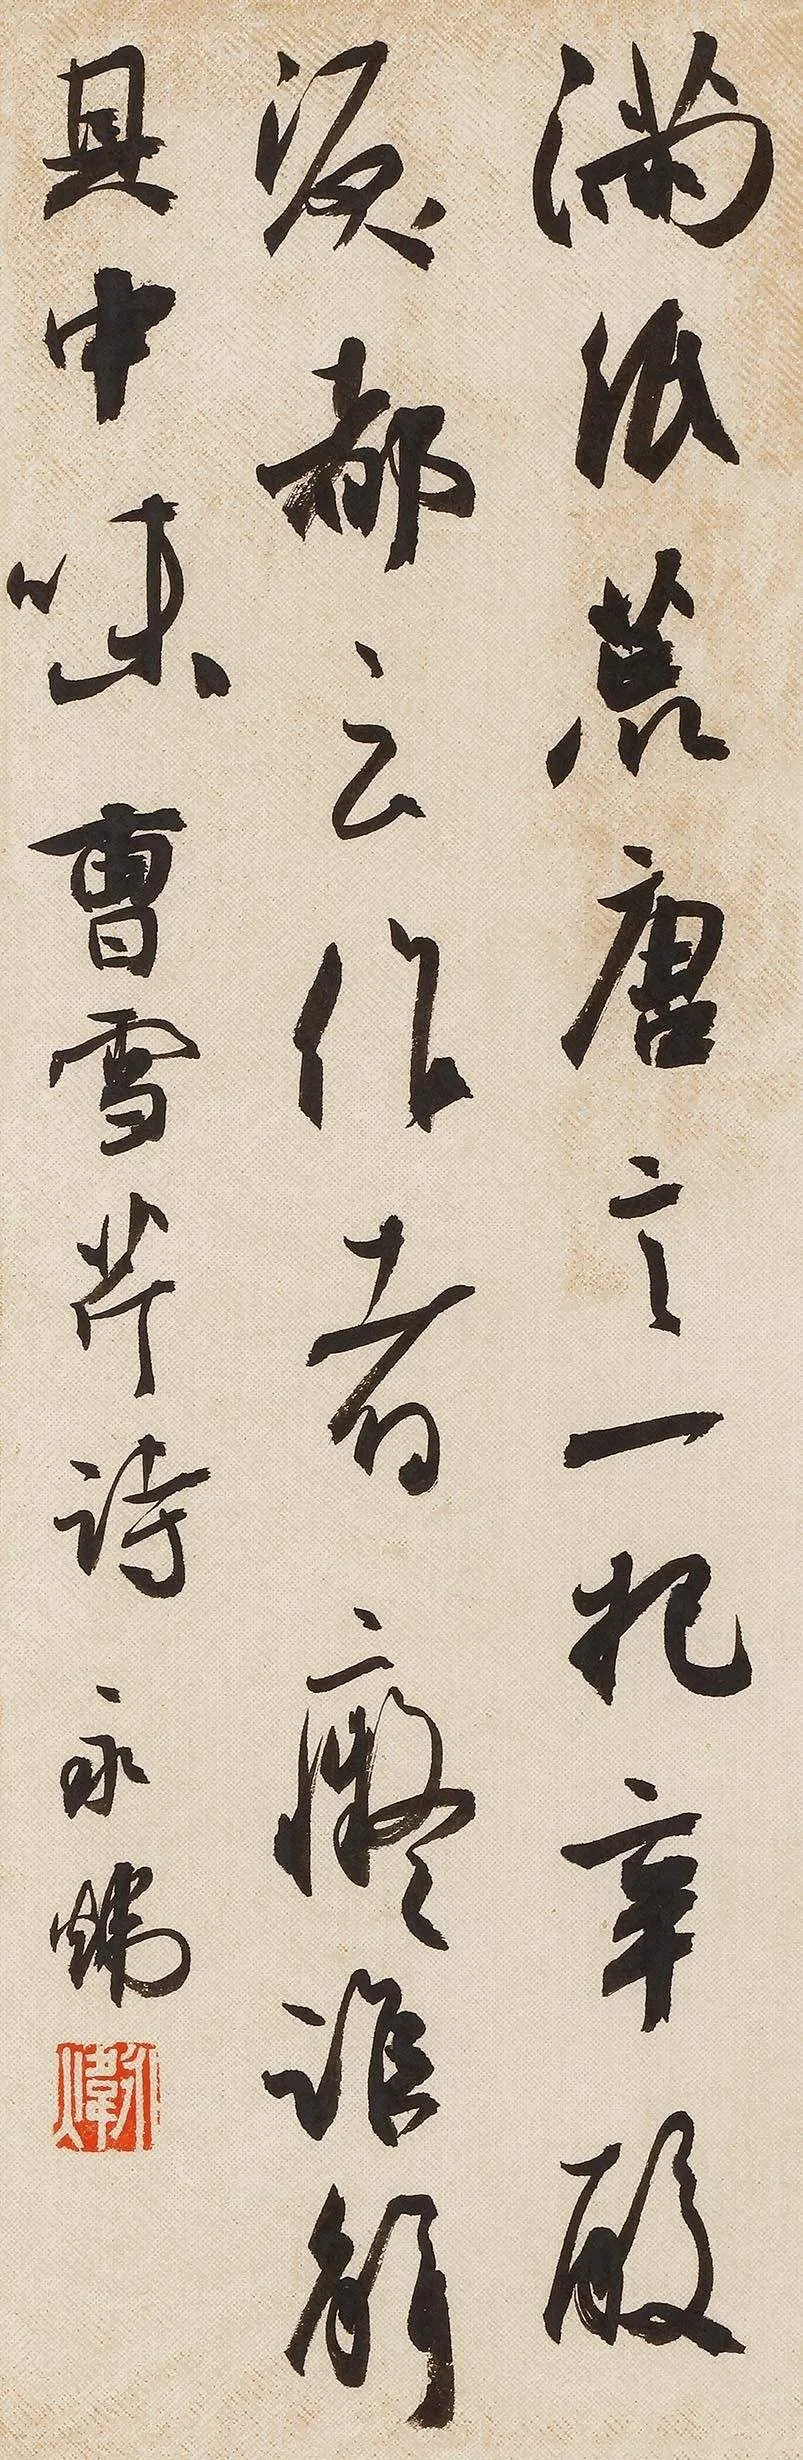 满纸荒唐言一把辛酸
泪都云作者痴谁解
其中味 曹雪芹诗 永炜
永炜